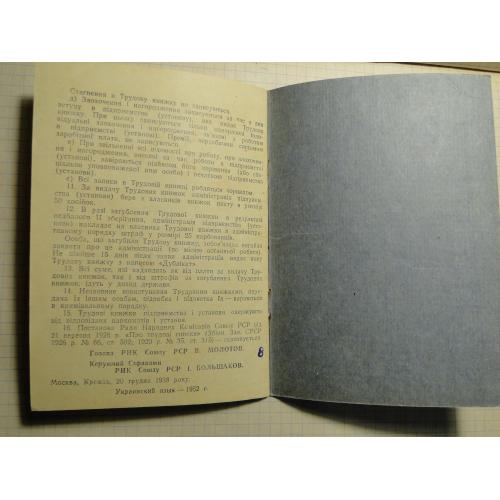 Стягнення в Трудову книжку не записуються.
д) Заохочення і нагородження записуються за час з дня
вступу в підприємство (установу), яка видає Трудову
книжку. При цьому записуються тільки
заохочення і нагородження, з роботою
в підприємстві (установі). Премії, передбачені
заробітної плати, не записуються.
е) При звільненні всі відомості про роботу, про заохочення
і нагородження, внесені за час роботи в підприємстві
(установі), завіряються підписом його керівника (або
уповноваженої ним особи) і печаткою підприємства
(установи).
є) Всі записи в Трудовій книжці робляться чорнилом.
11. За видачу Трудових книжок адміністрація підприємства
(установи) бере з власників книжок плату в розмірі
50 копійок.
12. В разі загублення Трудової книжки в результаті
недбалого її зберігання, адміністрація підприємства
(установи) накладає на власника Трудової книжки в адміністративному
порядку штраф у розмірі 25 карбованців.
Особа, що загубила Трудову книжку,
заявити про це адміністрації (по місцю останньої роботи).
Не пізніше 15 днів після заяви адміністрація видає нову
Трудову книжку з написом «Дублікат».
13. Всі суми, які надходять як від плати за видачу Трудових
книжок, так і від штрафів за загублення Трудових
книжок, ідуть у доход держави.
14. Незаконне користування Трудовими книжками, передача
їх іншим особам, підробка і підчистка їх — караються
в кримінальному порядку.
15. Трудові книжки підприємства і установи
від відповідних наркоматів і установ.
16. Постанова Ради Народних Комісарів Союзу РСР від
21 вересня 1926 р. «Про трудові списки» (Збірн. Зак. СРСР
1926 р. № 66, ст. 502; 1929 р. № 35, ст. 313) —
Голова РНК Союзу РСР В. МОЛОТОВ.
Керуючий Справами
РНК Союзу РСР І. БОЛЬШАКОВ.
8
Москва, Кремль, 20 грудня 1938 року.
Украинский язык — 1952 г.